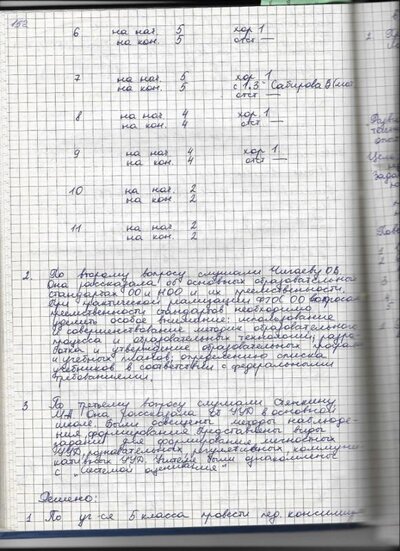 152
6 на нач. 5 хор 1
на кон. 5 отст —
7 на нач. 5 хор. 1
на кон. 5 с 1 "3" Сабирова В
отст —
8 на нач. 4 хор. 1
на кон. 4 отст —
9 на нач. 4 хор. 1
на кон. 4 отст —
10 на нач. 2
на кон. 2
11 на нач. 2
на кон. 2
2. По второму вопросу слушали ОВ
Она рассказала об основных образовательных
стандартах ОО и НОО и их преемственности.
При практической реализации ФГОС ОО вопросам
преемственности стандартов необходимо
уделить особое внимание: использование
и совершенствование методик образовательного
процесса и образовательных технологий, разра
ботка и утверждение образовательных
и учебных планов; определению списка
учебников в соответствии с федеральными
требованиями.
3 По третьему вопросу слушали
М.А. Она рассказала об УУД в основной
школе. Были освещены методы наблюде-
ния, формирования. Представлены виды
заданий для формирования личностных
УУД, познавательных, регулятивных, коммуни
кативных УУД. Учителя были ознакомлены
с "системой оценивания"
Решено:
1 По уч-ся 5 класса провести пед. консилиум